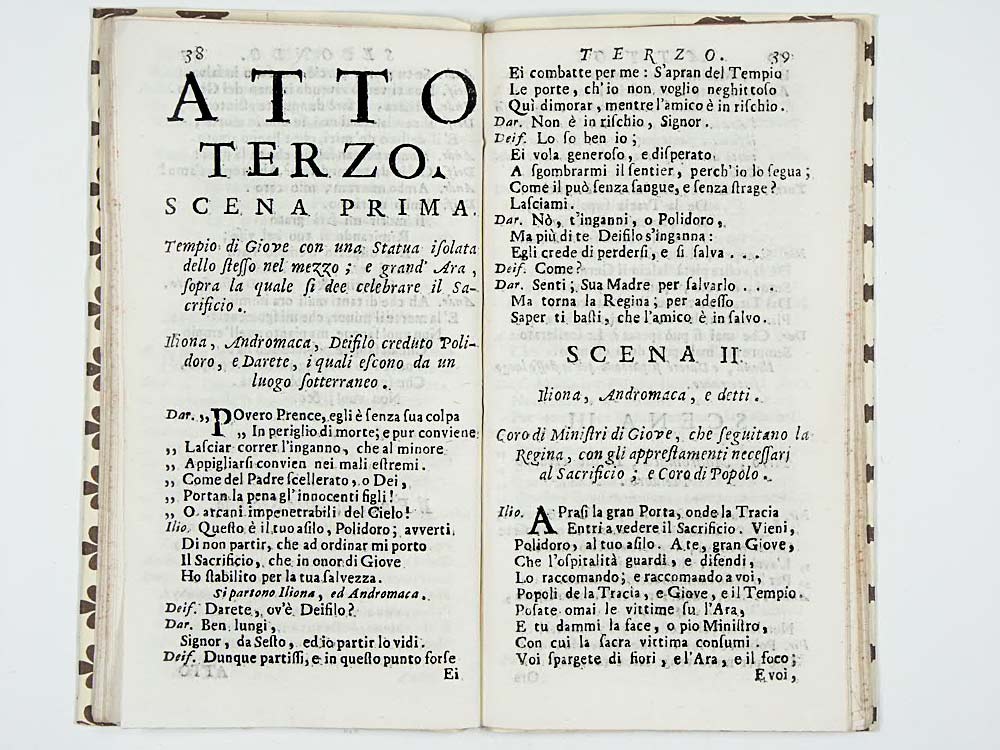 38
ATTO
TERZO.
SCENA PRIMA.
Tempio di Giove con una Statua iſolata
dello ſteſſo nel mezzo ; e grand' Ara ,
ſopra la quale ſi dee celebrare il Sa-
crificio .
Iliona, Andromaca, Deifilo creduto Poli-
doro, e Darete, i quali eſcono da un
luogo ſotterraneo .
Dar. ,, POvero Prence, egli è ſenza ſua colpa
,, In periglio di morte; e pur conviene
,, Laſciar correr l'inganno, che al minore
,, Appigliarſi convien nei mali eſtremi.
,, Come del Padre ſcellerato, o Dei,
,, Portan la pena gl'innocenti figli!
,, O arcani impenetrabili del Cielo!
Ilio. Queſto è il tuo aſilo, Polidoro; avverti
Di non partir, che ad ordinar mi porto
Il Sacrificio, che in onor di Giove
Ho ſtabilito per la tua ſalvezza.
si partono Iliona, ed Andromaca.
Deif. Darete, ov'è Deifilo?
Dar. Ben lungi,
Signor, da Seſto, ed io partir lo vidi.
Deif. Dunque partiſſi, e in queſto punto forſe
Ei
TERZO. 39
Ei combatte per me : S'apran del Tempio
Le porte, ch'io non voglio neghittoſo
Quì dimorar, mentre l'amico è in riſchio.
Dar. Non è in riſchio, Signor.
Deif. Lo ſo ben io;
Ei vola generoſo, e diſperato
A ſgombrarmi il ſentier, perch'io lo ſegua;
Come il può ſenza ſangue, e ſenza ſtrage?
Laſciami.
Dar. Nò, t'inganni, o Polidoro,
Ma più di te Deifilo s'inganna:
Egli crede di perderſi, e ſi ſalva . . .
Deif. Come?
Dar. Senti; Sua Madre per ſalvarlo . . .
Ma torna la Regina; per adeſſo
Saper ti baſti, che l'amico è in ſalvo.
SCENA II.
Iliona, Andromaca, e detti.
Coro di Miniſtri di Giove, che ſeguitano la
Regina, con gli appreſtamenti neceſſarj
al Sacrificio ; e Coro di Popolo .
Ilio. APraſi la gran Porta, onde la Tracia
Entri a vedere il Sacrificio. Vieni,
Polidoro, al tuo aſilo. A te, gran Giove,
Che l'oſpitalità guardi, e difendi,
Lo raccomando; e raccomando a voi,
Popoli de la Tracia, e Giove, e il Tempio.
Poſate omai le vittime ſu l'Ara,
E tu dammi la face, o pio Miniſtro,
Con cui la ſacra vittima conſumi.
Voi ſpargete di fiori, e l'Ara, e il foco;
E voi,